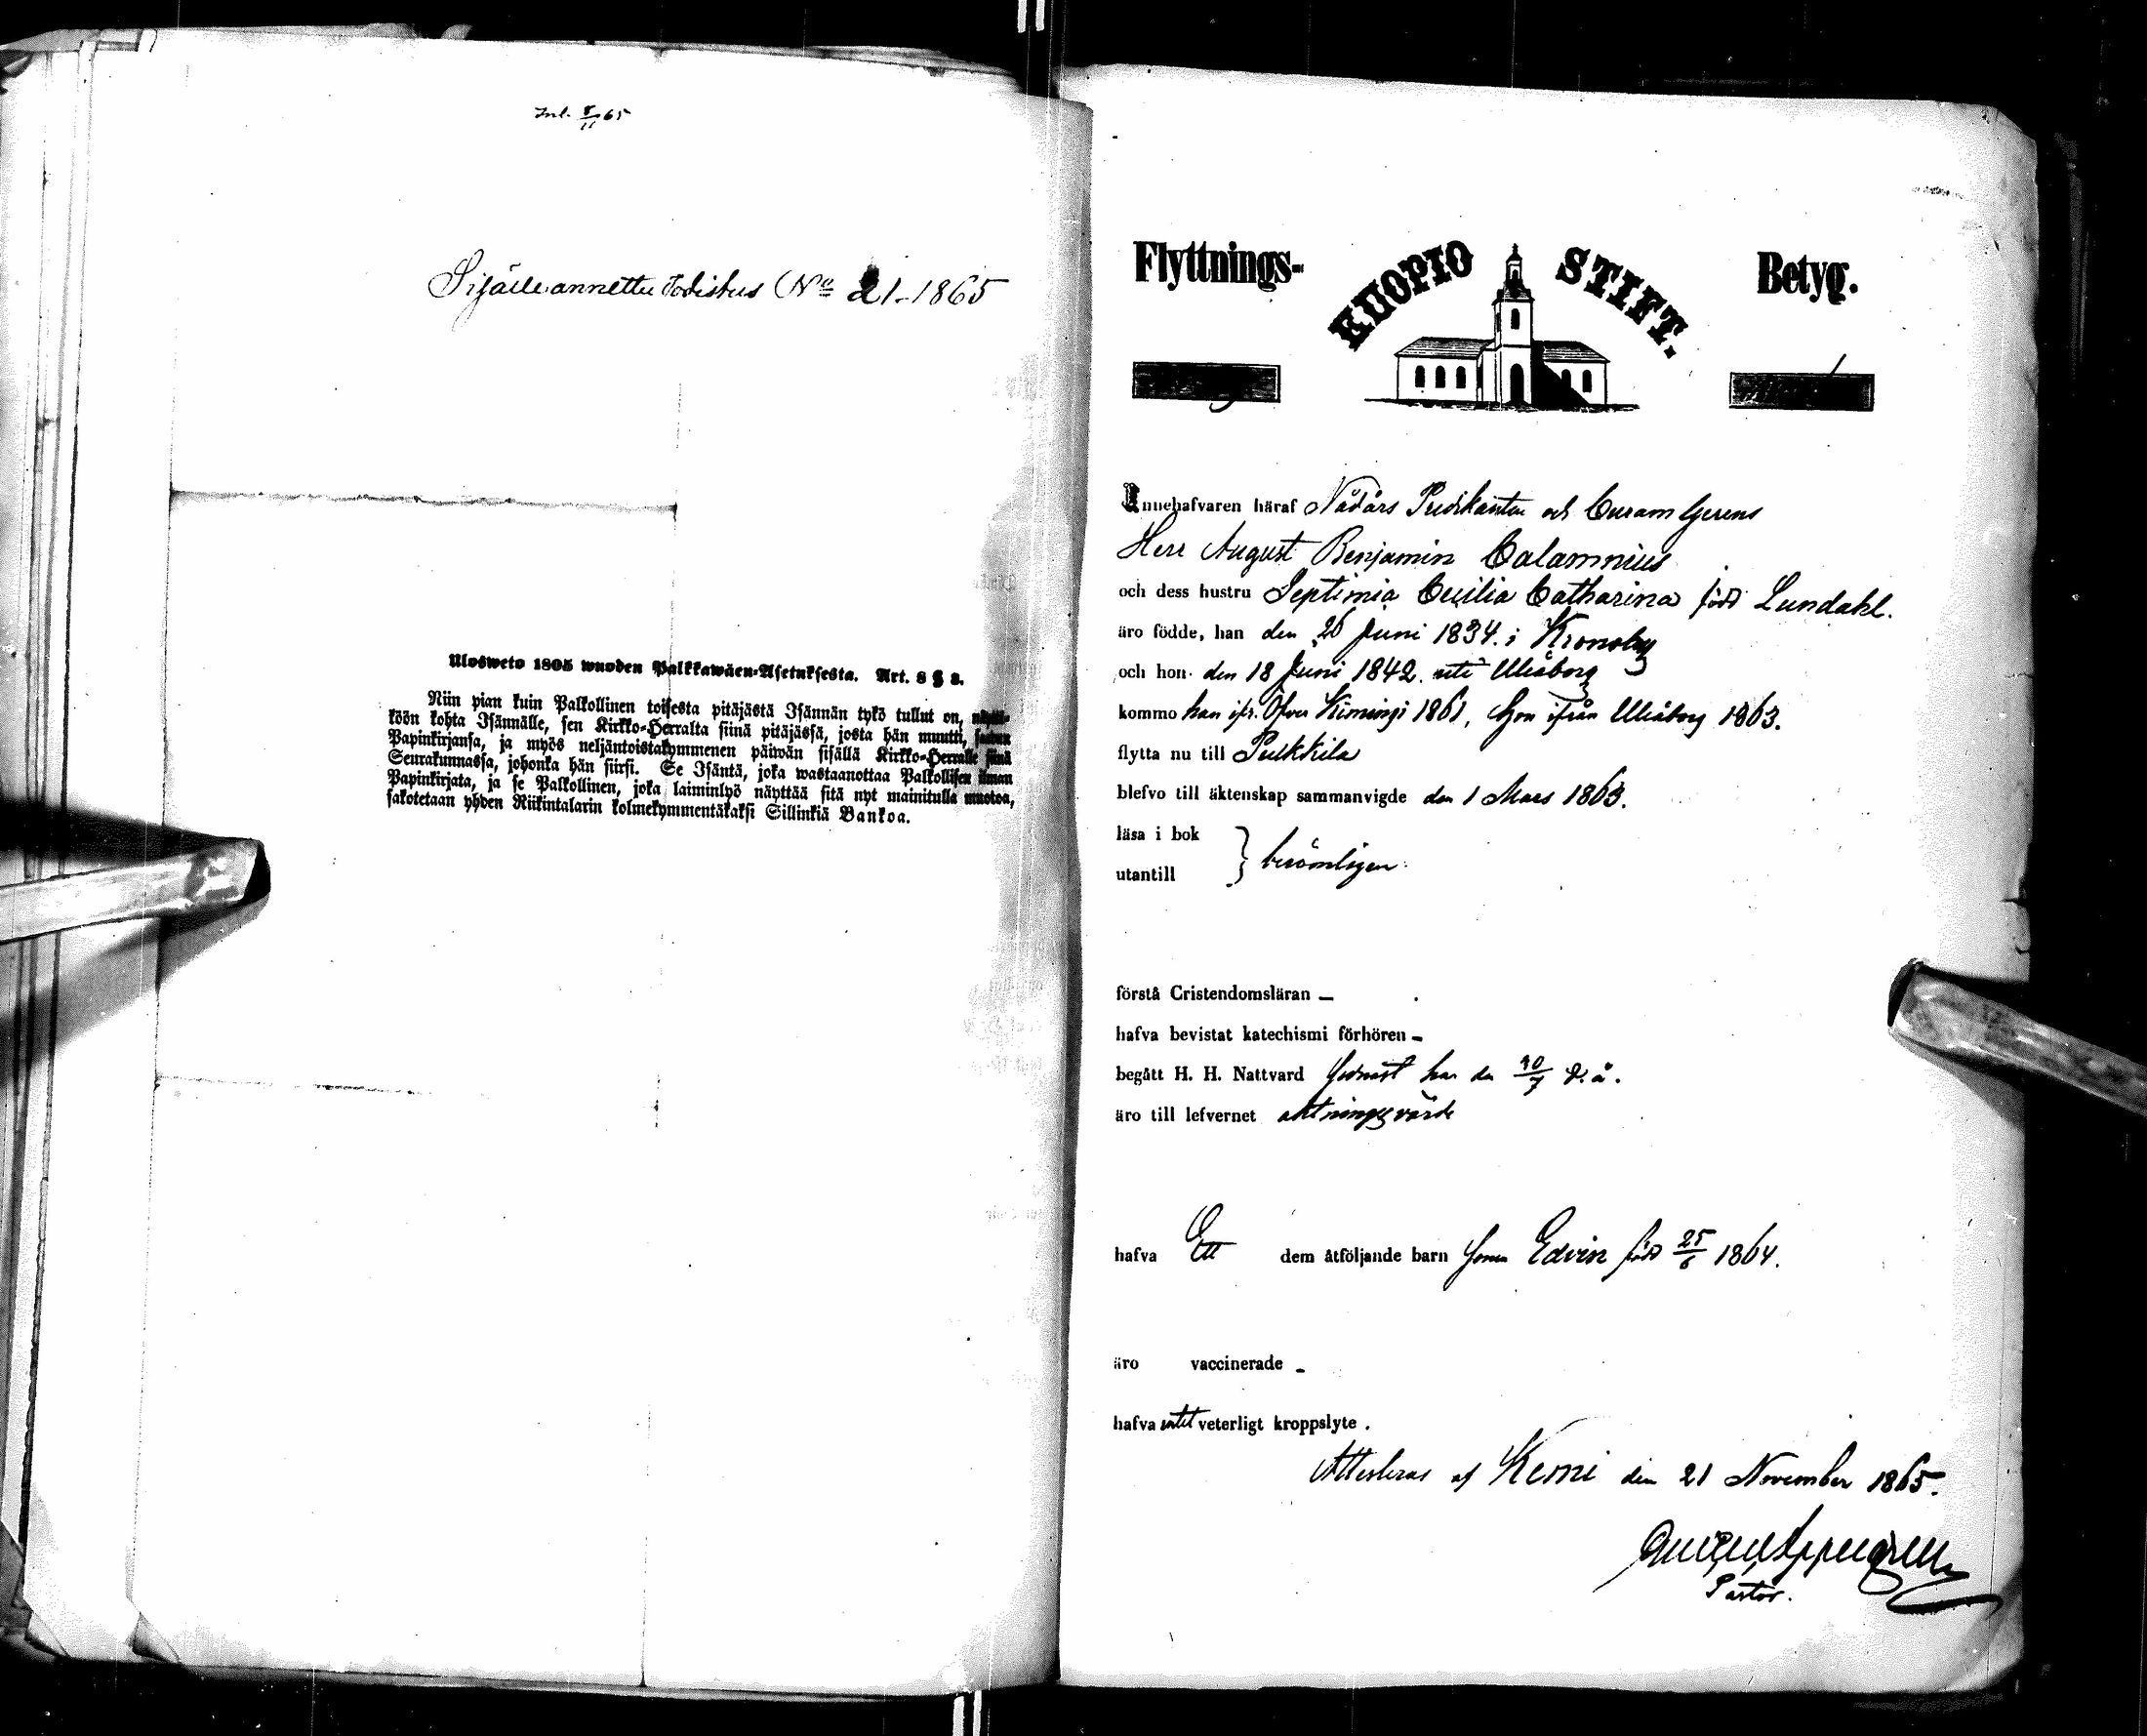 Inl. 8/11 65
Sisälle annettu todistus No 21-1865
Ulosweto 1805 wuoden Palkkawäen-Asetuksesta. Art. 8 § 3.
Niin pian kuin Palkollinen toisesta pitäjästä Isännän tykö tullut on, näyttä-
köön kohta Isännälle, sen Kirkko-Herralta siinä pitäjässä, josta hän muutti, saatun
Papinkirjansa, ja myös neljäntoistakymmenen päiwän sisällä Kirkko-Herralle siinä
Seurakunnassa, johonka hän siirsi. Se Isäntä, joka wastaanottaa Palkollisen ilman
Papinkirjata, ja se Palkollinen, joka laiminlyö näyttää sitä nyt mainitulla muotoa,
sakotetaan yhden Riikintalarin kolmekymmentäkaksi Sillinkiä Bankoa.
Flyttnings- KUOPIO STIFT. Betyg.
Innehafvaren häraf Nådårs Predikanten och Curam Gerens
Herr August Benjamin Calamnius
och dess hustru Septimia Cecilia Catharina född Lundahl.
äro födde, han den 26 Juni 1834. i Kronoby
och hon den 18 Juni 1842. uti Uleåborg
kommo han ifr. Öfver Kimingi 1861, hon ifrån Uleåborg 1863.
flytta nu till Pulkkila
blefvo till äktenskap sammanvigde den 1 Mars 1863.
läsa i bok
utantill } berömligen.
förstå Cristendomsläran –
hafva bevistat katechismi förhören –
begått H. H. Nattvard senast han den 10/7 d. å.
äro till lefvernet aktningsvärde
hafva Ett dem åtföljande barn sonen Edvin född 25/6 1864.
äro vaccinerade –
hafva intet veterligt kroppslyte .
Attesteras af Kemi den 21 November 1865.
Pastor.